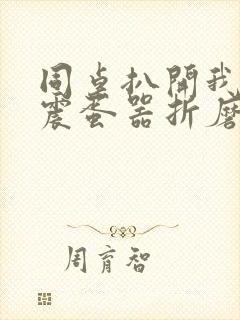 同卓扒開我
震蛋器折磨
周育智